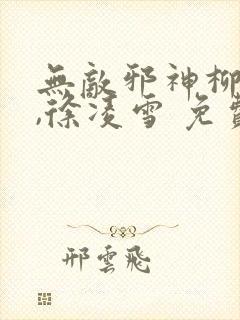 無敵邪神柳
,徐凌雪 免費
邢雲飛